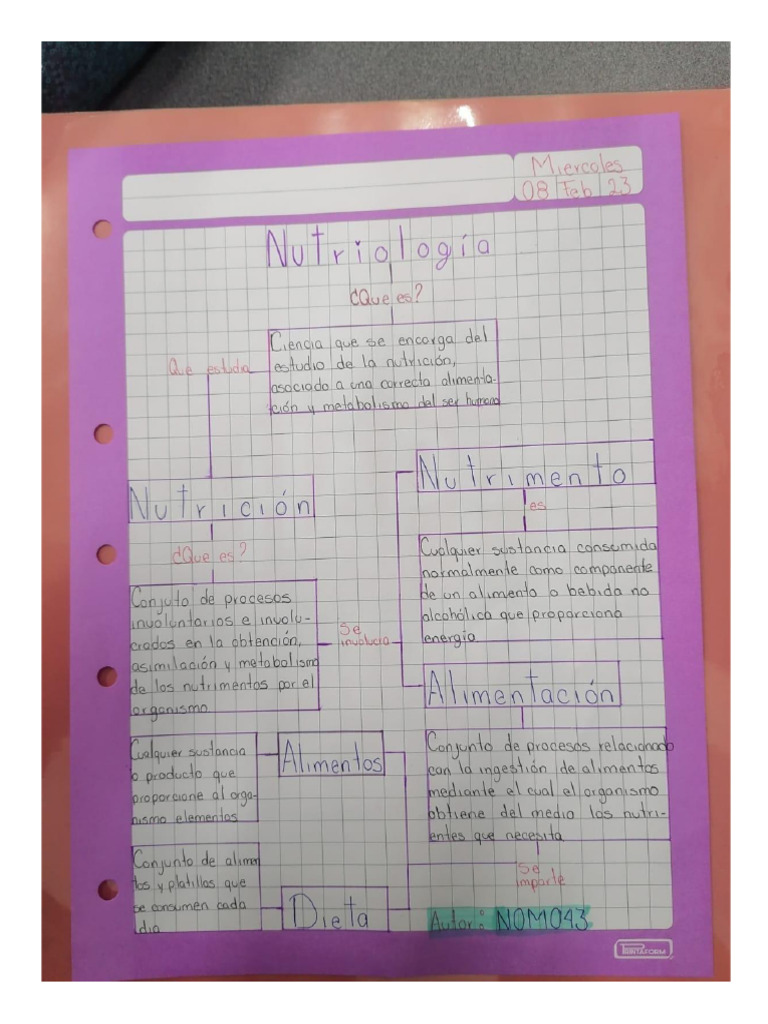 Miercoles
08 Feb 23
Nutriología
¿Que es?
Ciencia que se encarga del
estudio de la nutrición,
asociado a una correcta alimenta-
ción y metabolismo del ser humano
Que estudia
Nutrición
¿Que es?
Conjuto de procesos
involuntarios e involu-
crados en la obtención,
asimilación y metabolismo
de los nutrimentos por el
organismo
Se
involucra
Nutrimento
es
Cualquier sustancia consumida
normalmente como componente
de un alimento o bebida no
alcohólica que proporciona
energía
Alimentación
Conjunto de procesos relacionado
con la ingestión de alimentos
mediante el cual el organismo
obtiene del medio los nutri-
entes que necesita
Se
imparte
Alimentos
Cualquier sustancia
o producto que
proporcione al orga-
nismo elementos
Dieta
Conjunto de alimen
tos y platillos que
se consumen cada
dia
Autor: NOM043
PRINTAFORM